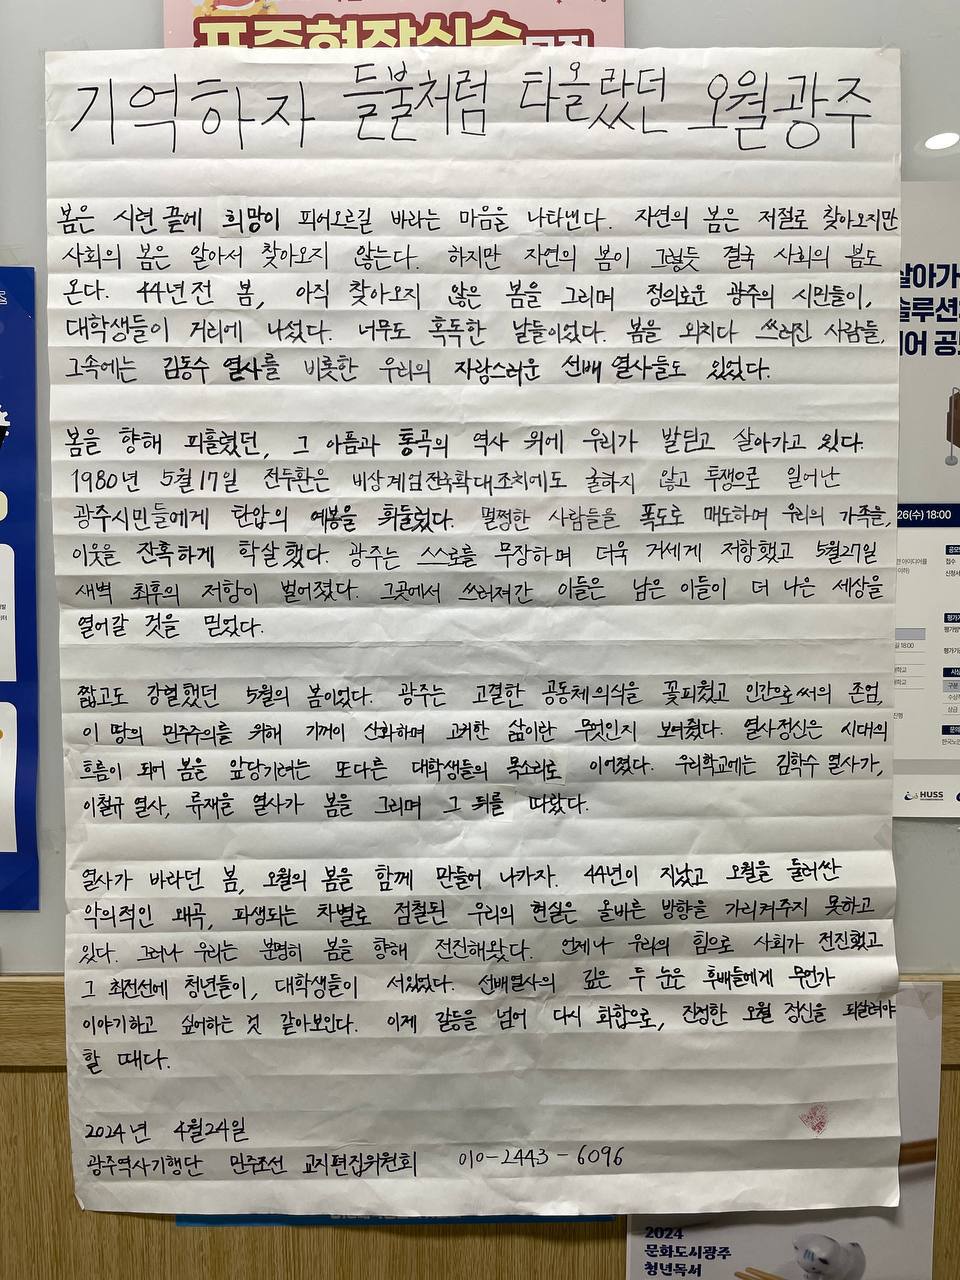 표준현장실습
기억하자 들불처럼 타올랐던 오월광주
봄은 시련 끝에 희망이 피어오르길 바라는 마음을 나타낸다. 자연의 봄은 저절로 찾아오지만
사회의 봄은 알아서 찾아오지 않는다. 하지만 자연의 봄이 그렇듯 결국 사회의 봄도
온다. 44년 전 봄, 아직 찾아오지 않은 봄을 그리며 정의로운 광주의 시민들이,
대학생들이 거리에 나섰다. 너무도 혹독한 날들이었다. 봄을 외치다 쓰러진 사람들,
그속에는 김동수 열사를 비롯한 우리의 자랑스러운 선배 열사들도 있었다.
봄을 향해 피흘렸던, 그 아픔과 통곡의 역사 위에 우리가 발딛고 살아가고 있다.
1980년 5월17일 전두환은 비상계엄전국확대조치에도 굴하지 않고 투쟁으로 일어난
광주시민들에게 탄압의 예봉을 휘둘렀다. 멀쩡한 사람들을 폭도로 매도하며 우리의 가족을,
이웃을 잔혹하게 학살했다. 광주는 스스로를 무장하며 더욱 거세게 저항했고 5월27일
새벽 최후의 저항이 벌어졌다. 그곳에서 쓰러져간 이들은 남은 이들이 더 나은 세상을
열어갈 것을 믿었다.
짧고도 강렬했던 5월의 봄이었다. 광주는 고결한 공동체 의식을 꽃피웠고 인간으로써의 존엄,
이 땅의 민주주의를 위해 기꺼이 산화하며 고귀한 삶이란 무엇인지 보여줬다. 열사정신은 시대의
흐름이 되어 봄을 앞당기려는 또다른 대학생들의 목소리로 이어졌다. 우리학교에는 김학수 열사가,
이철규 열사, 류재을 열사가 봄을 그리며 그 뒤를 따랐다.
열사가 바라던 봄, 오월의 봄을 함께 만들어 나가자. 44년이 지났고 오월을 둘러싼
악의적인 왜곡, 파생되는 차별로 점철된 우리의 현실은 올바른 방향을 가리켜주지 못하고
있다. 그러나 우리는 분명히 봄을 향해 전진해왔다. 언제나 우리의 힘으로 사회가 전진했고
그 최전선에 청년들이, 대학생들이 서있었다. 선배열사의 깊은 두 눈은 후배들에게 무언가
이야기하고 싶어하는 것 같아보인다. 이제 갈등을 넘어 다시 화합으로, 진정한 오월 정신을 되살려야
할 때다.
2024년 4월24일
광주역사기행단 민주조선 교지편집위원회 010-2443-6096
26(수) 18:00
HUSS
2024
문화도시광주
청년독서